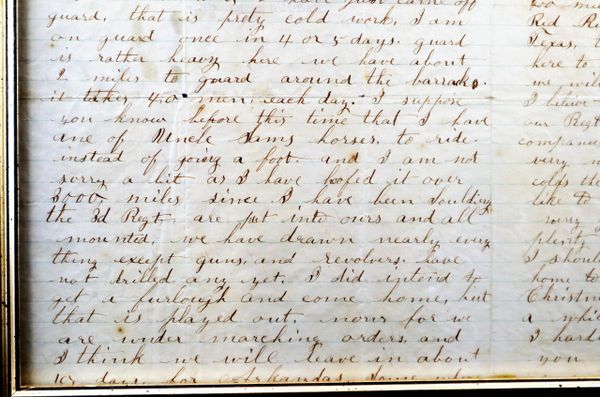 I have just came off
guard, that is prety cold work, I am
on guard once in 4 or 5 days. guard
is rather heavy here we have about
2 miles to guard around the barracks.
it takes 40 men each day. I suppose
you know before this time that I have
one of Uncle Sams horses, to ride.
instead of going a foot. and I am not
sorry a bit as I have hoofed it over
3000, miles since I have been Souldiering
the 3d Regt, are put into ours and all
mounted, we have drawn nearly every
thing except guns, and revolvers. have
not drilled any yet. I did intend to
get a furlough and come home, but
that is played out nour for we
are under marching orders, and
I think we will leave in about
10 days, for Arkansas, Some where
Red Ri
Texas,
here to
we wil
I believe
our Regt
companie
verry
colds th
like to
verry
plenty
I shoul
home to
Christm
a whi
I hard
you